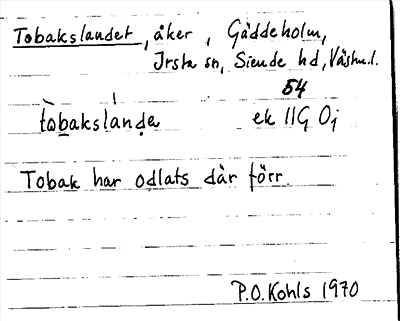 Tobakslandet, åker, Gäddeholm,
Irsta sn, Siende hd, Västml.
54
tòbakslánda ek 11G 0j
Tobak har odlats där förr.
P.O. Kohls 1970